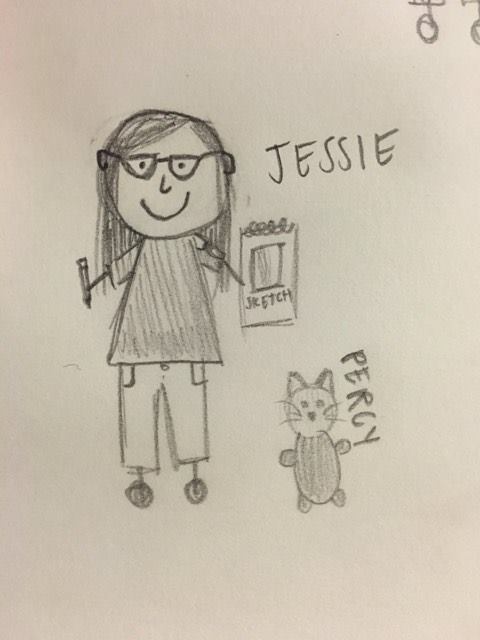 JESSIE
SKETCH
PERCY